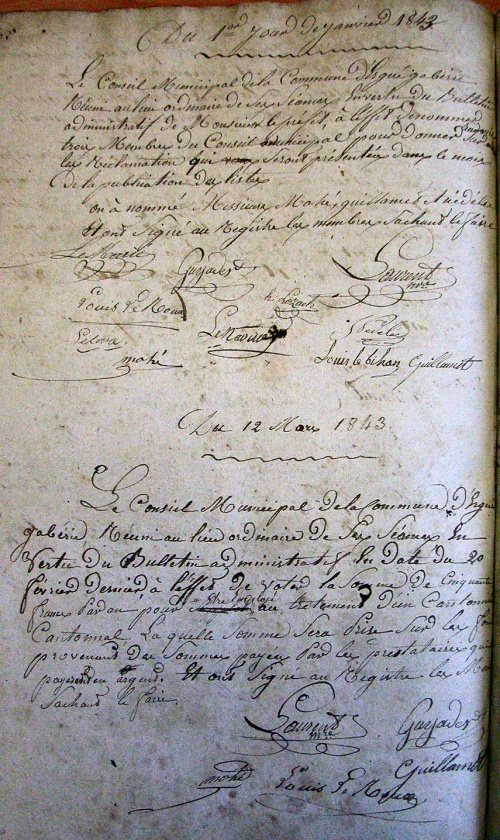 Du 1er Jour de janvier 1843
Le Conseil Municipal de la Commune d'Ergué gabéric
Réuni au lieu ordinaire de ses séances En vertu du Bulletin
administratif de Monsieur le préfet, à l'effet de nommer
trois Membres du Conseil municipal pour donner
les Réclamation qui seront présentées dans le mois
de la publication des listes
on à nommé Messieurs Mahé, guillamet et nédélec
Et ont signé au Registre les membres Sachant le faire
Guyader
Laurent
mre
Louis Le Roux
mahé
Louis le bihan Guillamet
Du 12 Mars 1843.
Le Conseil Municipal de la Commune d'Ergué
gabéric Réuni au lieu ordinaire de ses séances En
Vertu du Bulletin administratif En date du 20
février dernier à l'effet de voter la somme de cinquante
francs par an pour être employé au tretement d'un Cantonnier
Cantonnal La quelle somme sera prise sur les fonds
provenant des sommes payées par les prestataires qui
payeront en argent. Et ont signé au Registre les
Sachant le faire.
Laurent Guyader
mre
mahé Louis Le Roux Guillamet